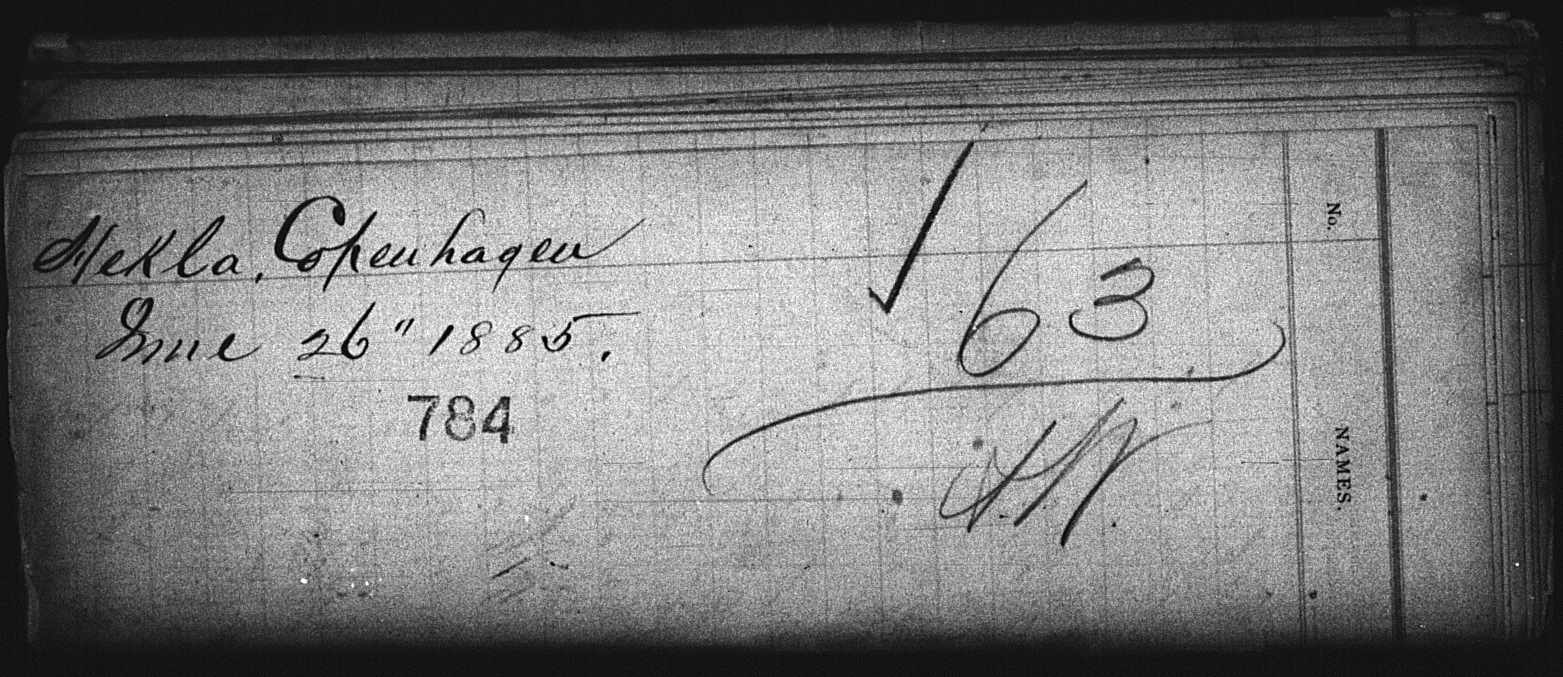 Hekla, Copenhagen
June 26" 1885.
784
✓ 63
No.
NAMES.